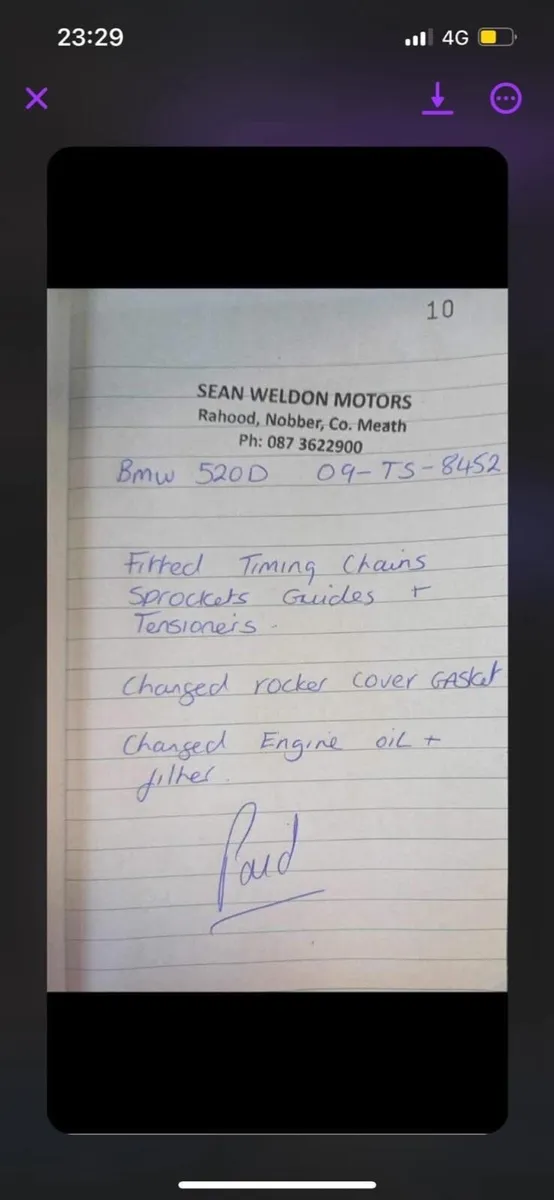 23:29
4G
10
SEAN WELDON MOTORS
Rahood, Nobber, Co. Meath
Ph: 087 3622900
Bmw 520D 09-TS-8452
Fitted Timing Chains
Sprockets Guides +
Tensioners.
Changed rocker cover GASket
Changed Engine oil +
filter.
Paid